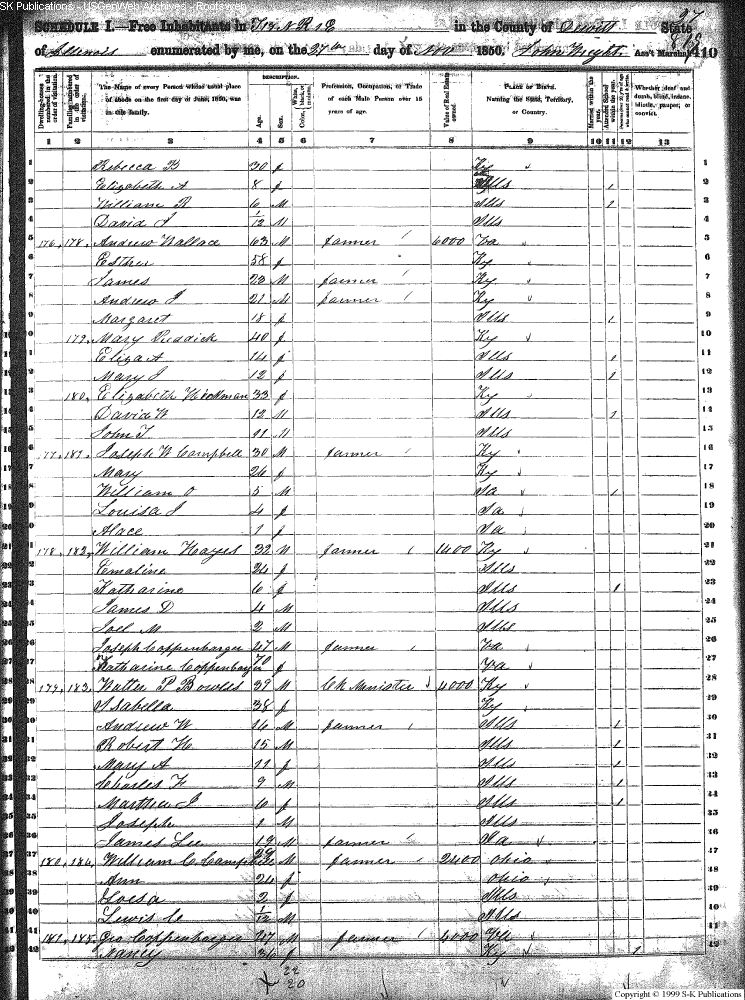 SK Publications - USGenWeb Archives - Rootsweb
SCHEDULE I.—Free Inhabitants in T 19 N R 1 E in the County of Dewitt State
of Illinois enumerated by me, on the 27th day of Nov 1850. John Wright. Ass't Marshal 410
DESCRIPTION.
Dwelling-houses numbered in the order of visitation. Families numbered in the order of visitation. The Name of every Person whose usual place of abode on the first day of June, 1850, was in this family. Age. Sex. Color, White, black, or mulatto. Profession, Occupation, or Trade of each Male Person over 15 years of age. Value of Real Estate owned. PLACE OF BIRTH. Naming the State, Territory, or Country. Married within the year. Attended School within the year. Whether deaf and dumb, blind, insane, idiotic, pauper, or convict.
1 2 3 4 5 6 7 8 9 10 11 12 13
1 Rebecca B 30 f Ky 1
2 Elizabeth A 8 f Ills 1 2
3 William R 6 M Ills 1 3
4 David J 1/12 M Ills 4
5 176 178 Andrew Wallace 63 M farmer 6000 Va 5
6 Esther 58 f Ky 6
7 James 23 M farmer Ky 7
8 Andrew J 21 M farmer Ky 8
9 Margaret 18 f Ills 1 9
10 179 Mary 40 f Ky 10
11 Eliza A 14 f Ills 1 11
12 Mary J 12 f Ills 1 12
13 180 Elizabeth Hickman 33 f Ky 13
14 David W 12 M Ills 1 14
15 John T 11 M Ills 15
16 177 181 Joseph W Campbell 30 M farmer Ky 16
17 Mary 26 f Ky 17
18 William O 5 M Ia 1 18
19 Louisa J 4 f Ia 19
20 Alace 1 f Ia 20
21 178 182 William Hayes 32 M farmer 1400 Ky 21
22 Emaline 24 f Ills 22
23 Katharine 6 f Ills 1 23
24 James D 4 M Ills 24
25 Joel M 2 M Ills 25
26 Joseph Coppenbarger 47 M farmer Va 26
27 Katharine Coppenbarger 70 f Va 27
28 179 183 Walter P Bowles 39 M Ck Minister 4000 Ky 28
29 Isabella 38 f Ky 29
30 Andrew W 16 M farmer Ills 1 30
31 Robert H 15 M Ills 1 31
32 Mary A 11 f Ills 1 32
33 Charles W 9 M Ills 1 33
34 J 6 f Ills 1 34
35 Joseph 1 M Ills 35
36 James Lee 19 M farmer 36
37 180 184 William C Campbell M farmer 2400 Ohio 37
38 Ann 24 f Ohio 38
39 2 f Ills 39
40 Lewis C 1/12 M Ills 40
41 181 185 Geo Coppenbarger 47 M farmer 4000 Va 41
42 Nancy f Ky 1 42
22
20
Copyright © 1999 S-K Publications